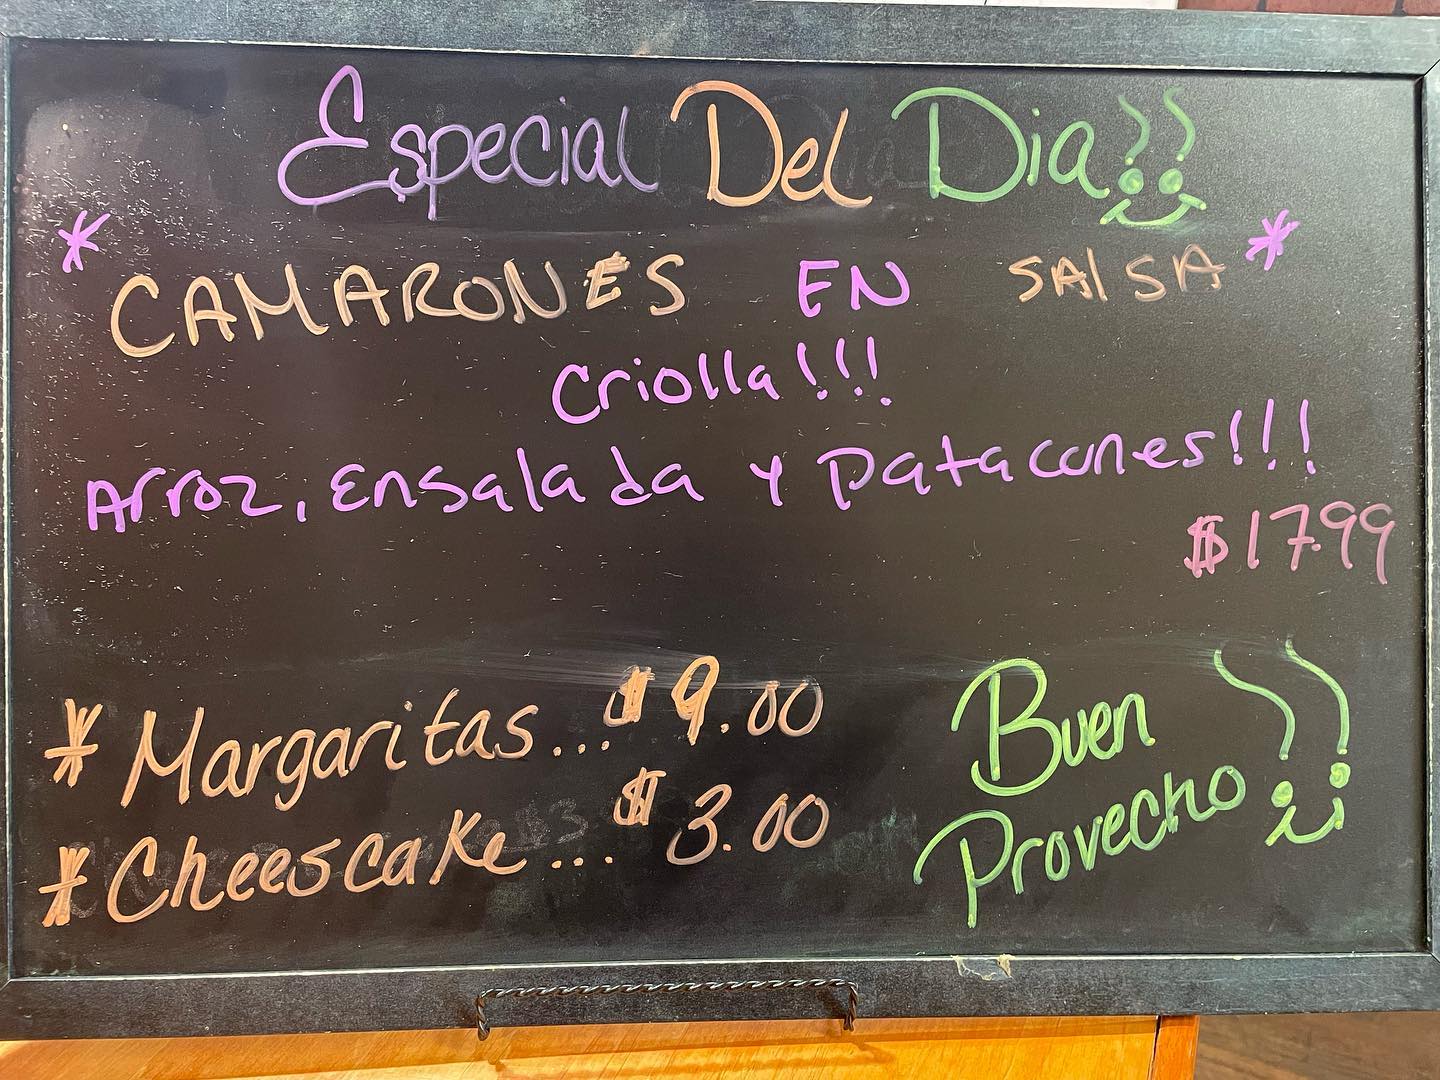 Especial Del Dia
* CAMARONES EN SALSA *
Criolla!!!
Arroz, Ensalada y Patacones!!!
$17.99
* Margaritas... $9.00
* Cheescake... $3.00
Buen
Provecho